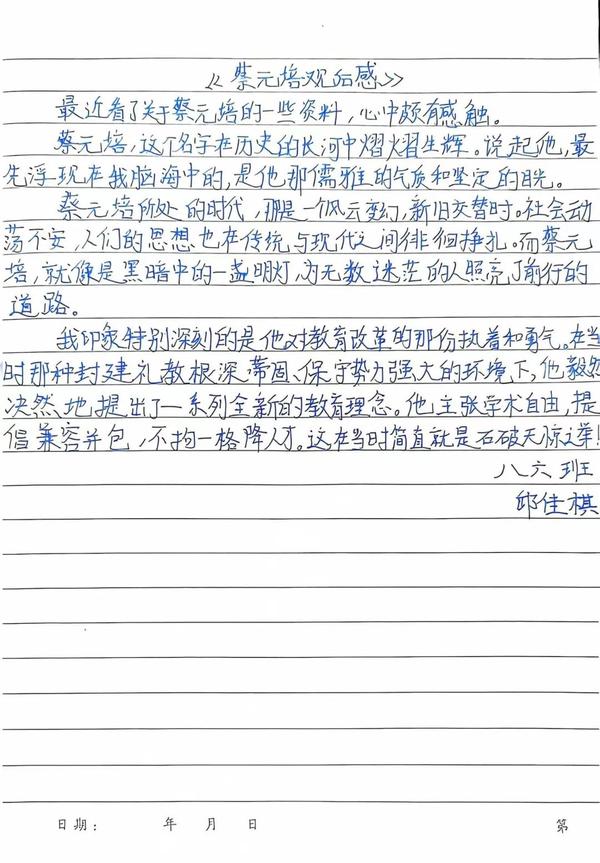 《蔡元培观后感》
最近看了关于蔡元培的一些资料，心中颇有感触。
蔡元培，这个名字在历史的长河中熠熠生辉。说起他，最
先浮现在我脑海中的，是他那儒雅的气质和坚定的目光。
蔡元培所处的时代，那是一个风云变幻，新旧交替时。社会动
荡不安，人们的思想也在传统与现代之间徘徊挣扎。而蔡元
培，就像是黑暗中的一盏明灯，为无数迷茫的人照亮了前行的
道路。
我印象特别深刻的是他对教育改革的那份执着和勇气。在当
时那种封建礼教根深蒂固、保守势力强大的环境下，他毅然
决然地提出了一系列全新的教育理念。他主张学术自由，提
倡兼容并包，不拘一格降人才。这在当时简直就是石破天惊之举！
八六班
邱佳棋
日期： 年 月 日 第